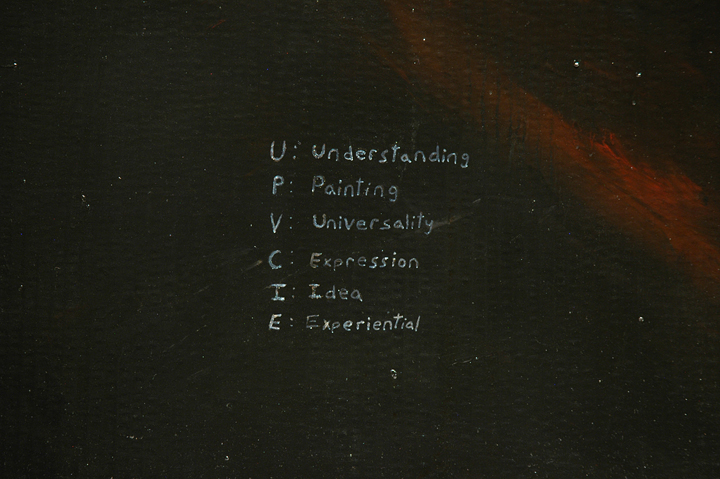 U: Understanding
P: Painting
V: Universality
C: Expression
I: Idea
E: Experiential